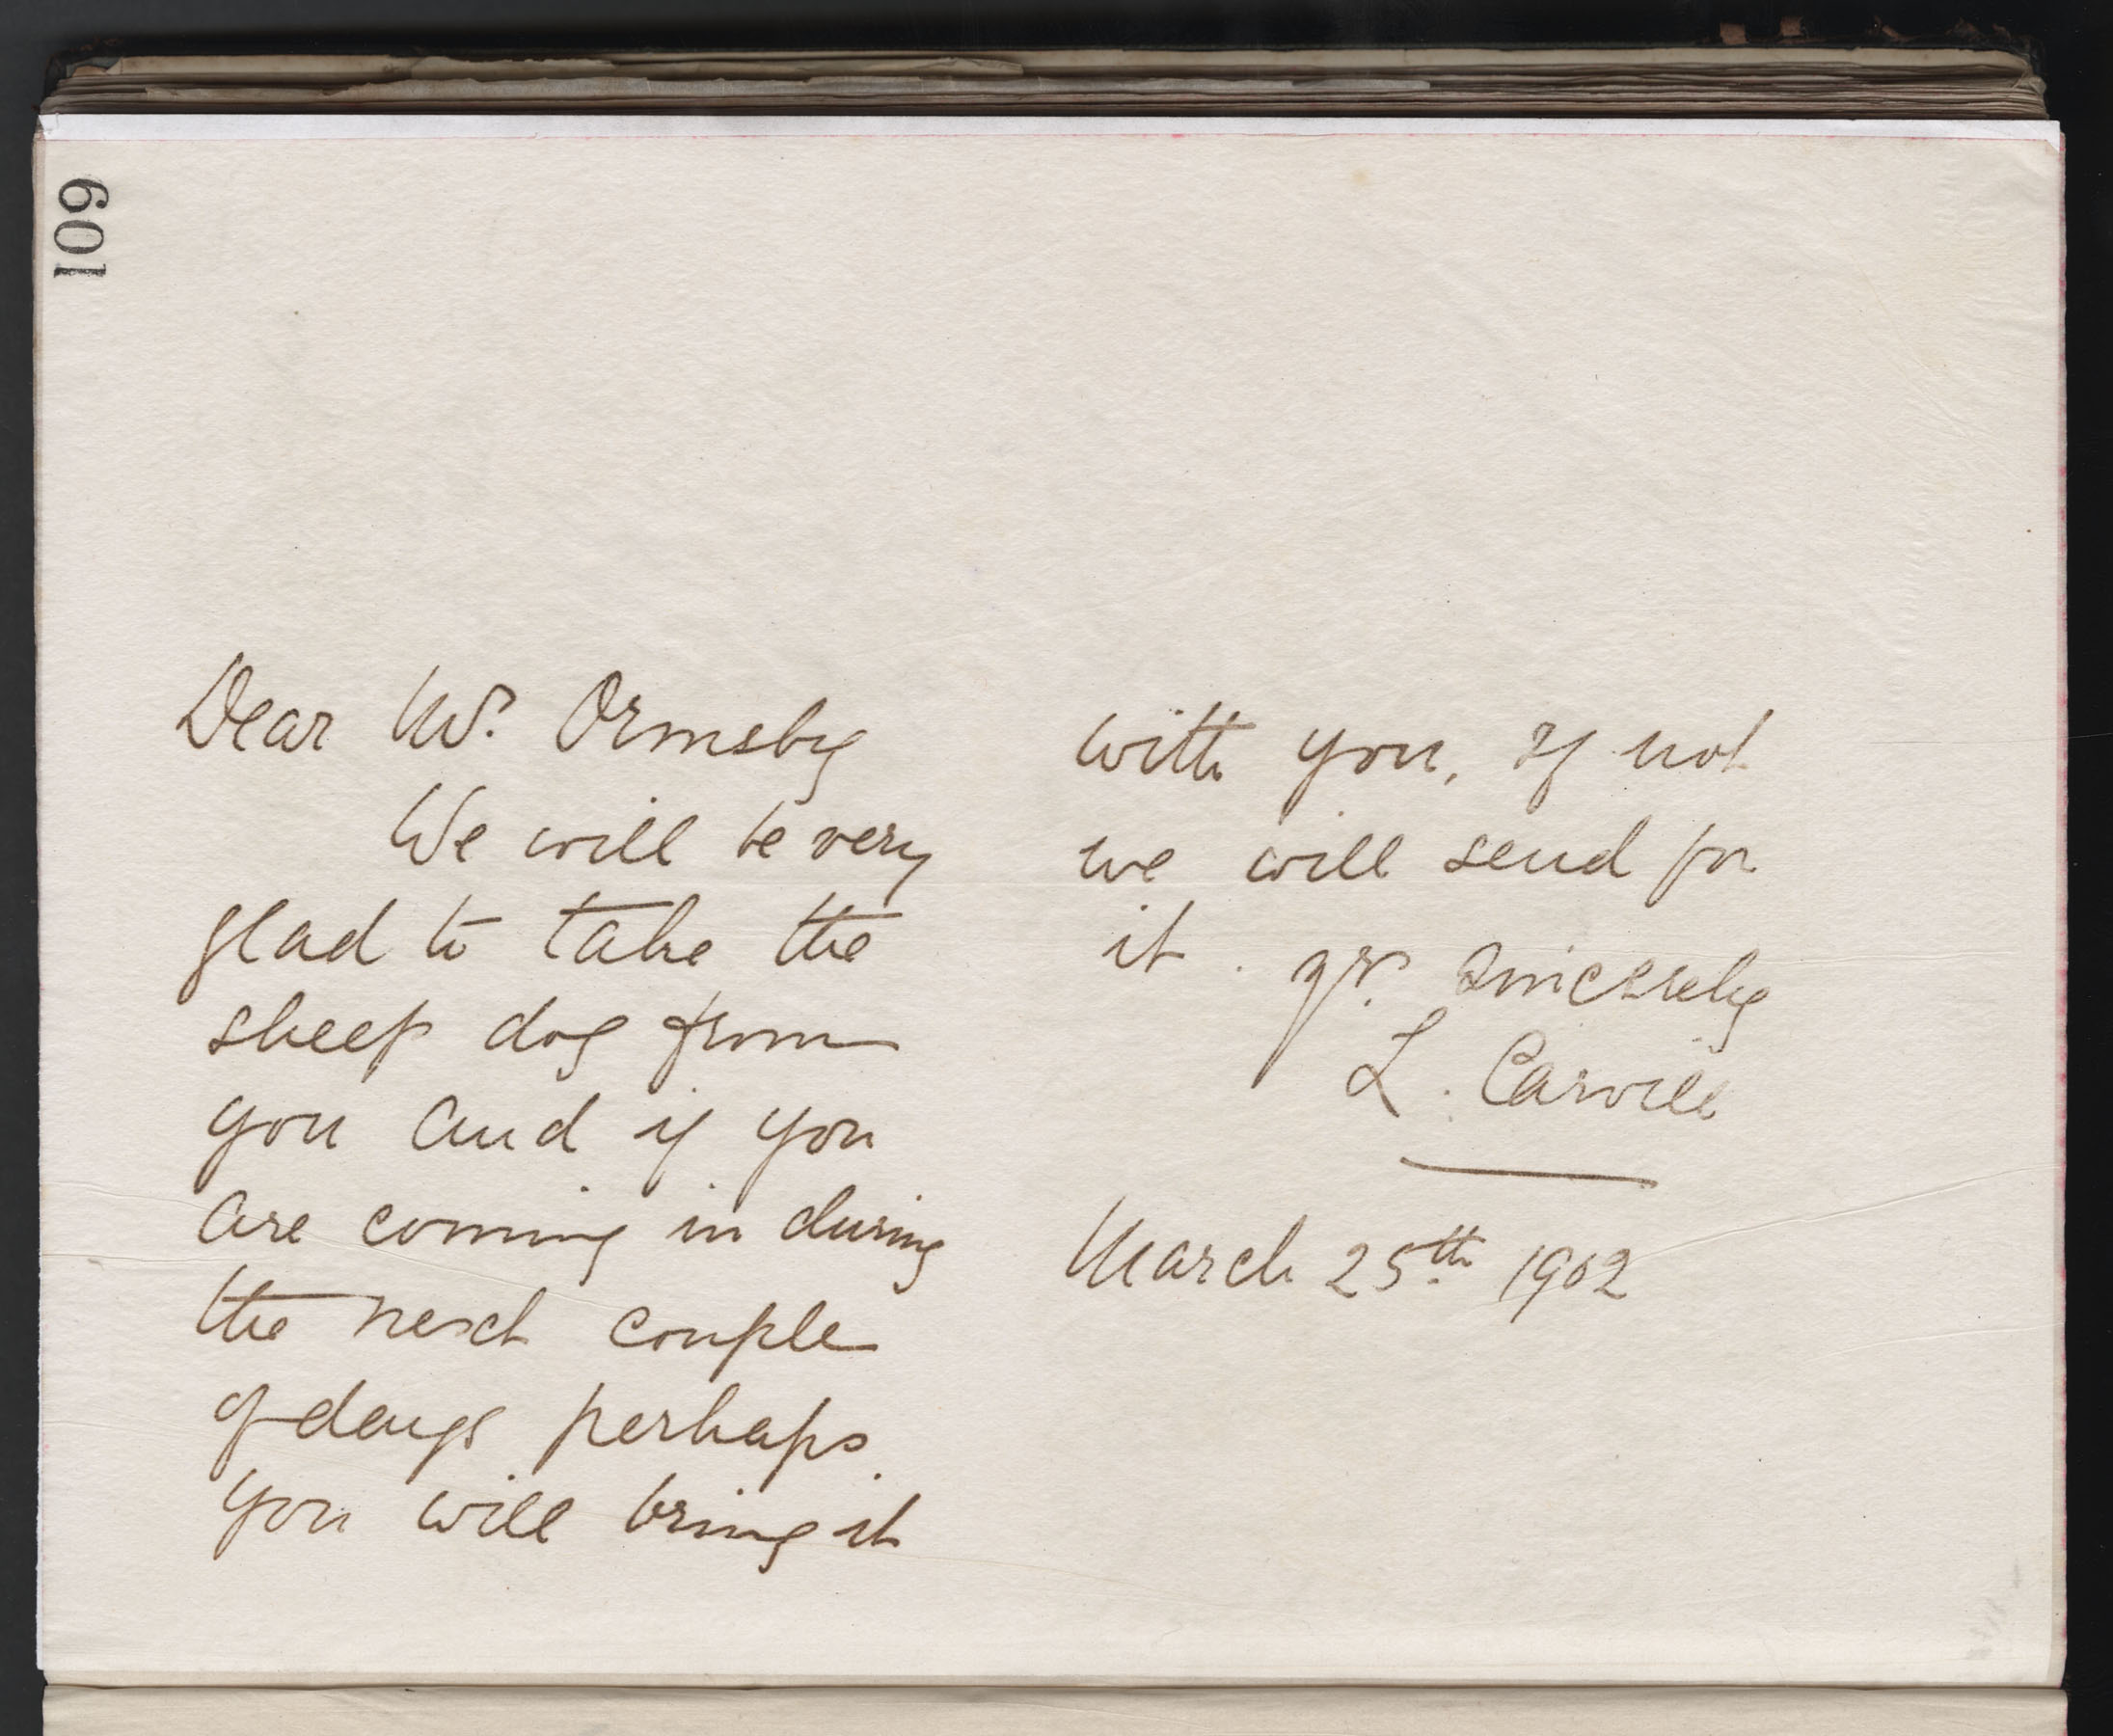 109
Dear Mr. Ormsby
We will be very
glad to take the
sheep dog from
you and if you
are coming in during
the next couple
of days perhaps
you will bring it
with you, If not
we will send for
it. yr. sincerely
L. Carvill
March 25th. 1902